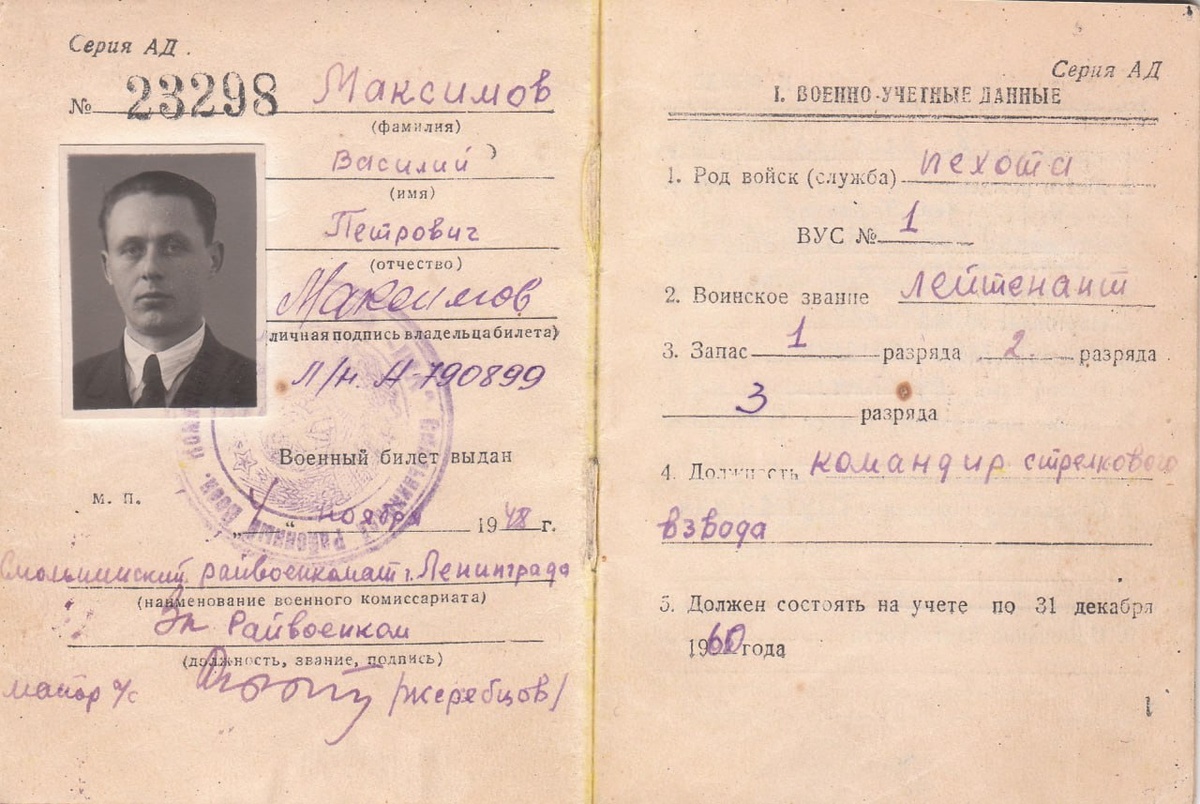 Серия АД
№ 23298 Максимов
(фамилия)
Василий
(имя)
Петрович
(отчество)
Максимов
(личная подпись владельца билета)
Л/н. А-190899
Военный билет выдан
м. п.
" ноября 1948 г.
Смольнинский райвоенкомат г. Ленинграда
(наименование военного комиссариата)
Райвоенком
(должность, звание, подпись)
майор а/с /Жеребцов/
Серия АД
I. ВОЕННО-УЧЕТНЫЕ ДАННЫЕ
1. Род войск (служба) пехота
ВУС № 1
2. Воинское звание лейтенант
3. Запас 1 разряда 2 разряда
3 разряда
4. Должность командир стрелкового
взвода
5. Должен состоять на учете по 31 декабря
1960 года
1